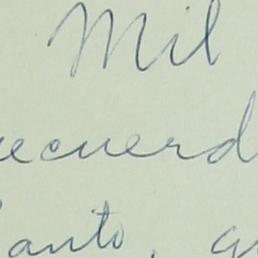 Mil
recuerd
anto, qu